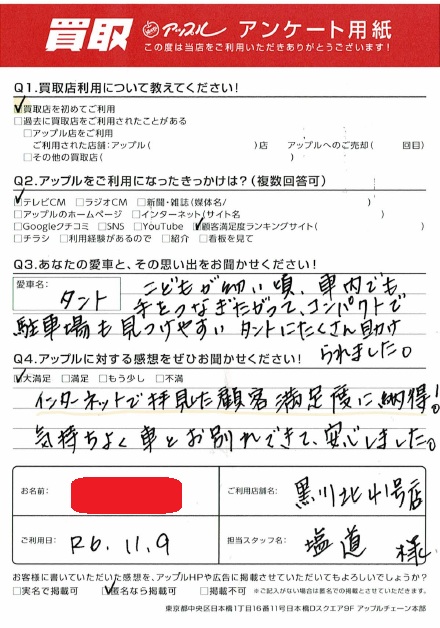 買取 アップル アンケート用紙
この度は当店をご利用いただきありがとうございます！
Q1.買取店利用について教えてください！
☑買取店を初めてご利用
□過去に買取店をご利用されたことがある
□アップル店をご利用
ご利用された店舗：アップル( )店 アップルへのご売却( 回目)
□その他の買取店( )
Q2.アップルをご利用になったきっかけは？(複数回答可)
☑テレビCM □ラジオCM □新聞・雑誌(媒体名/ )
□アップルのホームページ □インターネット(サイト名 )
□Googleクチコミ □SNS □YouTube ☑顧客満足度ランキングサイト( )
□チラシ □利用経験があるので □紹介 □看板を見て
Q3.あなたの愛車と、その思い出をお聞かせください！
愛車名： タント
こどもが幼い頃、車内でも
手をつなぎたがって、コンパクトで
駐車場も見つけやすいタントにたくさん助け
られました。
Q4.アップルに対する感想をぜひお聞かせください！
☑大満足 □満足 □もう少し □不満
インターネットで拝見した顧客満足度に納得！
気持ちよく車とお別れできて、安心しました。
お名前：
ご利用店舗名： 黒川北41号店
ご利用日： R6.11.9
担当スタッフ名： 塩道 様
お客様に書いていただいた感想を、アップルHPや広告に掲載させていただいてもよろしいでしょうか？
□実名で掲載可 ☑匿名なら掲載可 □掲載不可 ※ご記入がない場合は匿名での掲載とさせていただきます。
東京都中央区日本橋1丁目16番11号日本橋Dスクエア9F アップルチェーン本部